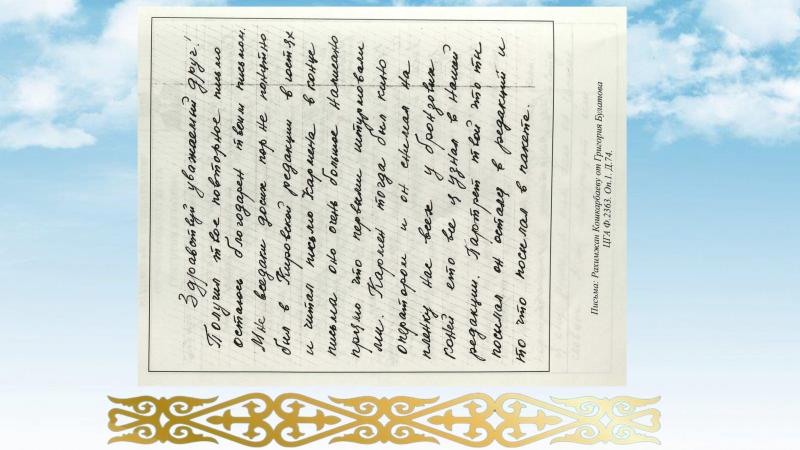 Здравствуй уважаемый друг!
Получил твое повторное письмо
остаюсь благодарен твоим письмом.
Мне вседаки досих пор не понятно
был в Кировской редакции в гостях
и читал письмо Кармена в конце
письма оно очень больше написано
прямо что первыми штурмовали
ми. Кармен тогда был кино
оператором и он снимал на
пленку нас всех у бронзовых
коней ето все я узнал в нашей
редакции. Партрет твой что ти
посилал он остался в редакций и
то что посилал в пакете.
Письма: Рахимжан Кошкарбаеву от Григория Булатова
ЦГА Ф.2363. Оп.1. Д.74.